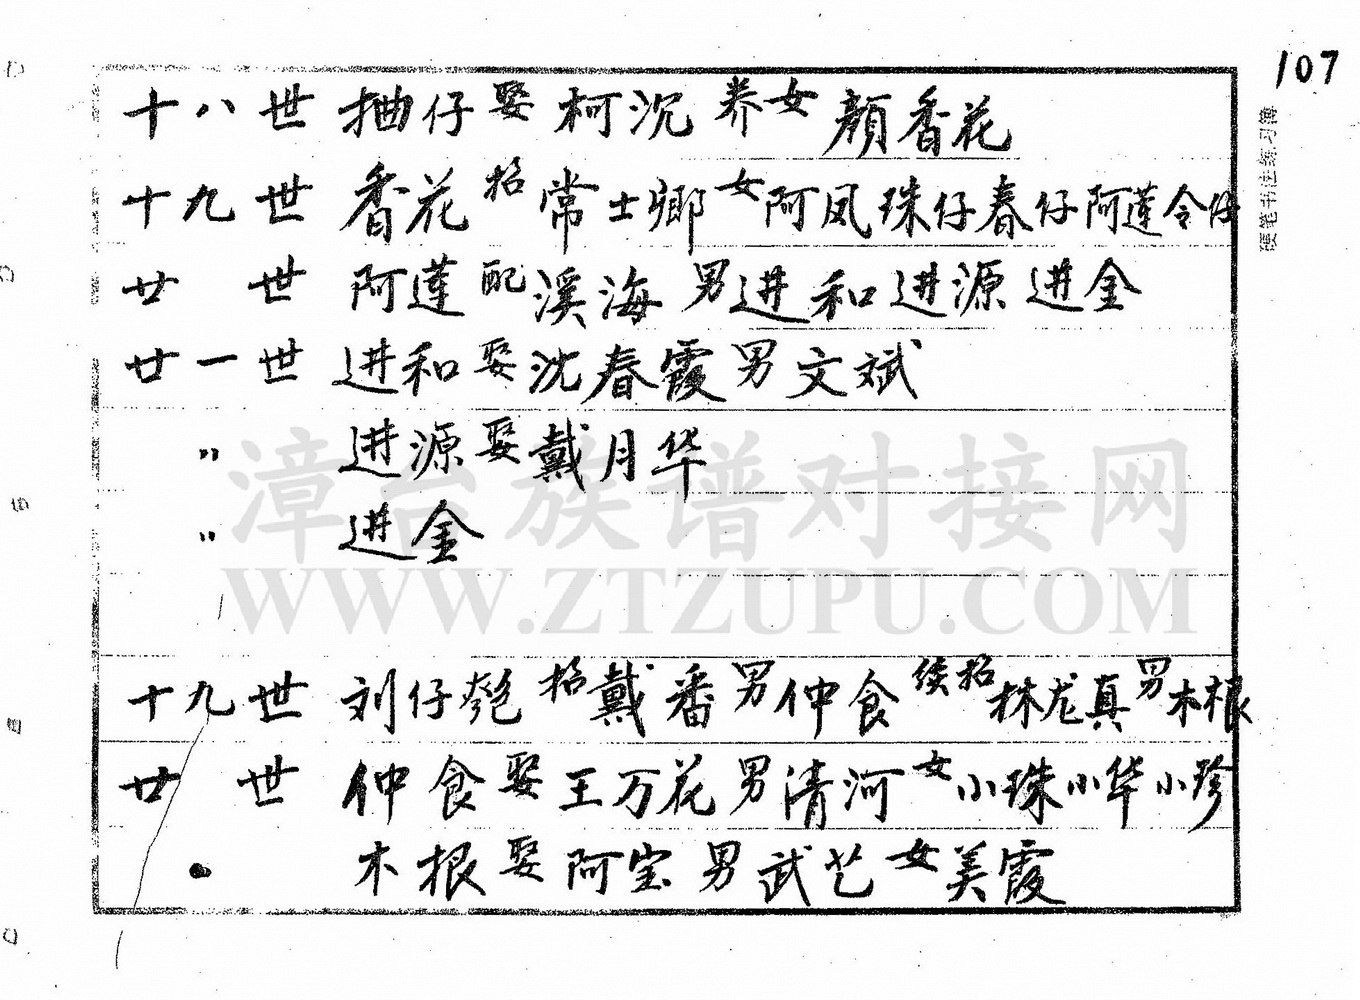 107
硬笔书法练习簿
十八世 抽仔娶柯沉养女颜香花
十九世 香花招常士卿女阿凤珠仔春仔阿莲令仔
廿世 阿莲配溪海男进和进源进金
廿一世 进和娶沈春霞男文斌
〃 进源娶戴月华
〃 进金
漳台族谱对接网
WWW.ZTZUPU.COM
十九世 刘仔招戴番男仲食续招林龙真男木根
廿世 仲食娶王万花男清河女小珠小华小珍
木根娶阿宝男武艺女美霞